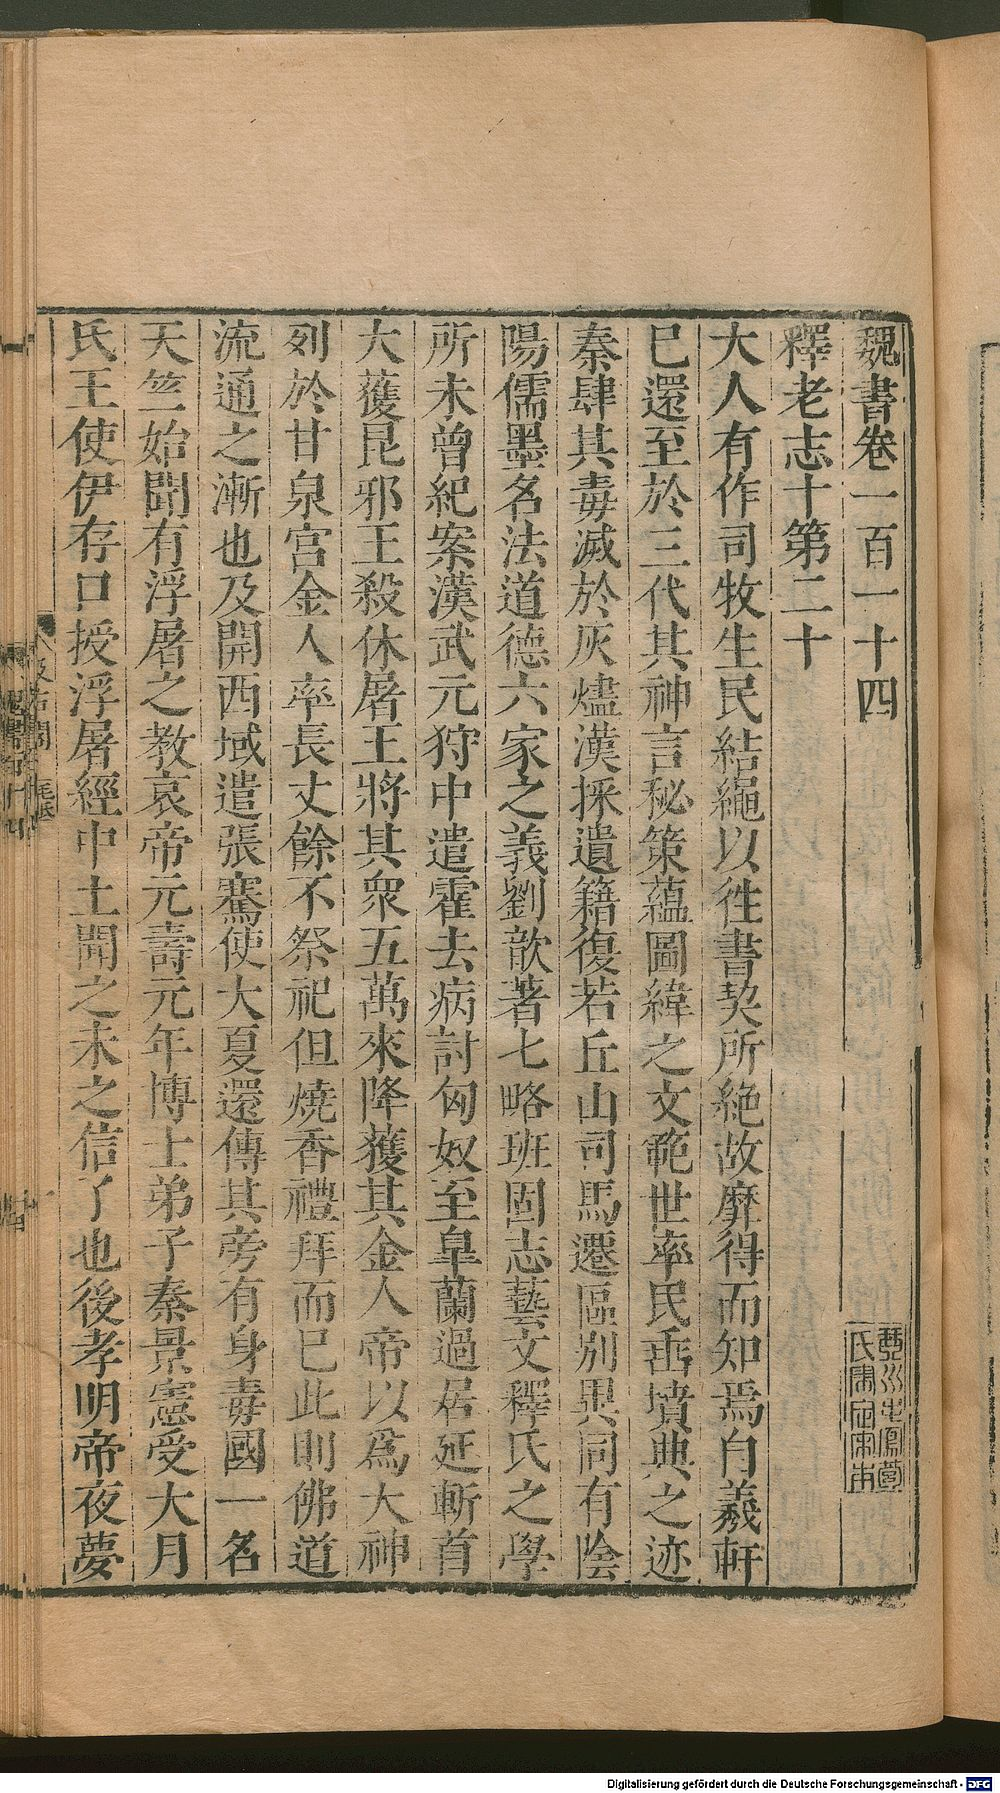 魏書卷一百一十四
釋老志十第二十
大人有作司牧生民結繩以徃書契所絶故靡得而知焉自羲軒
巳還至於三代其神言秘策藴圖緯之文範世率民垂墳典之迹
秦肆其毒滅於灰燼漢採遺籍復若丘山司馬遷區别異同有隂
陽儒墨名法道德六家之義劉歆著七略班固志藝文釋氏之學
所未曾紀案漢武元狩中遣霍去病討匈奴至臯蘭過居延斬首
大獲昆邪王殺休屠王將其衆五萬來降獲其金人帝以爲大神
列於甘泉宫金人率長丈餘不祭祀但燒香禮拜而巳此則佛道
流通之漸也及開西域遣張騫使大夏還傳其旁有身毒國一名
天竺始聞有浮屠之教哀帝元壽元年博士弟子秦景憲受大月
氏王使伊存口授浮屠經中土聞之未之信了也後孝明帝夜夢
Digitalisierung gefördert durch die Deutsche Forschungsgemeinschaft - DFG